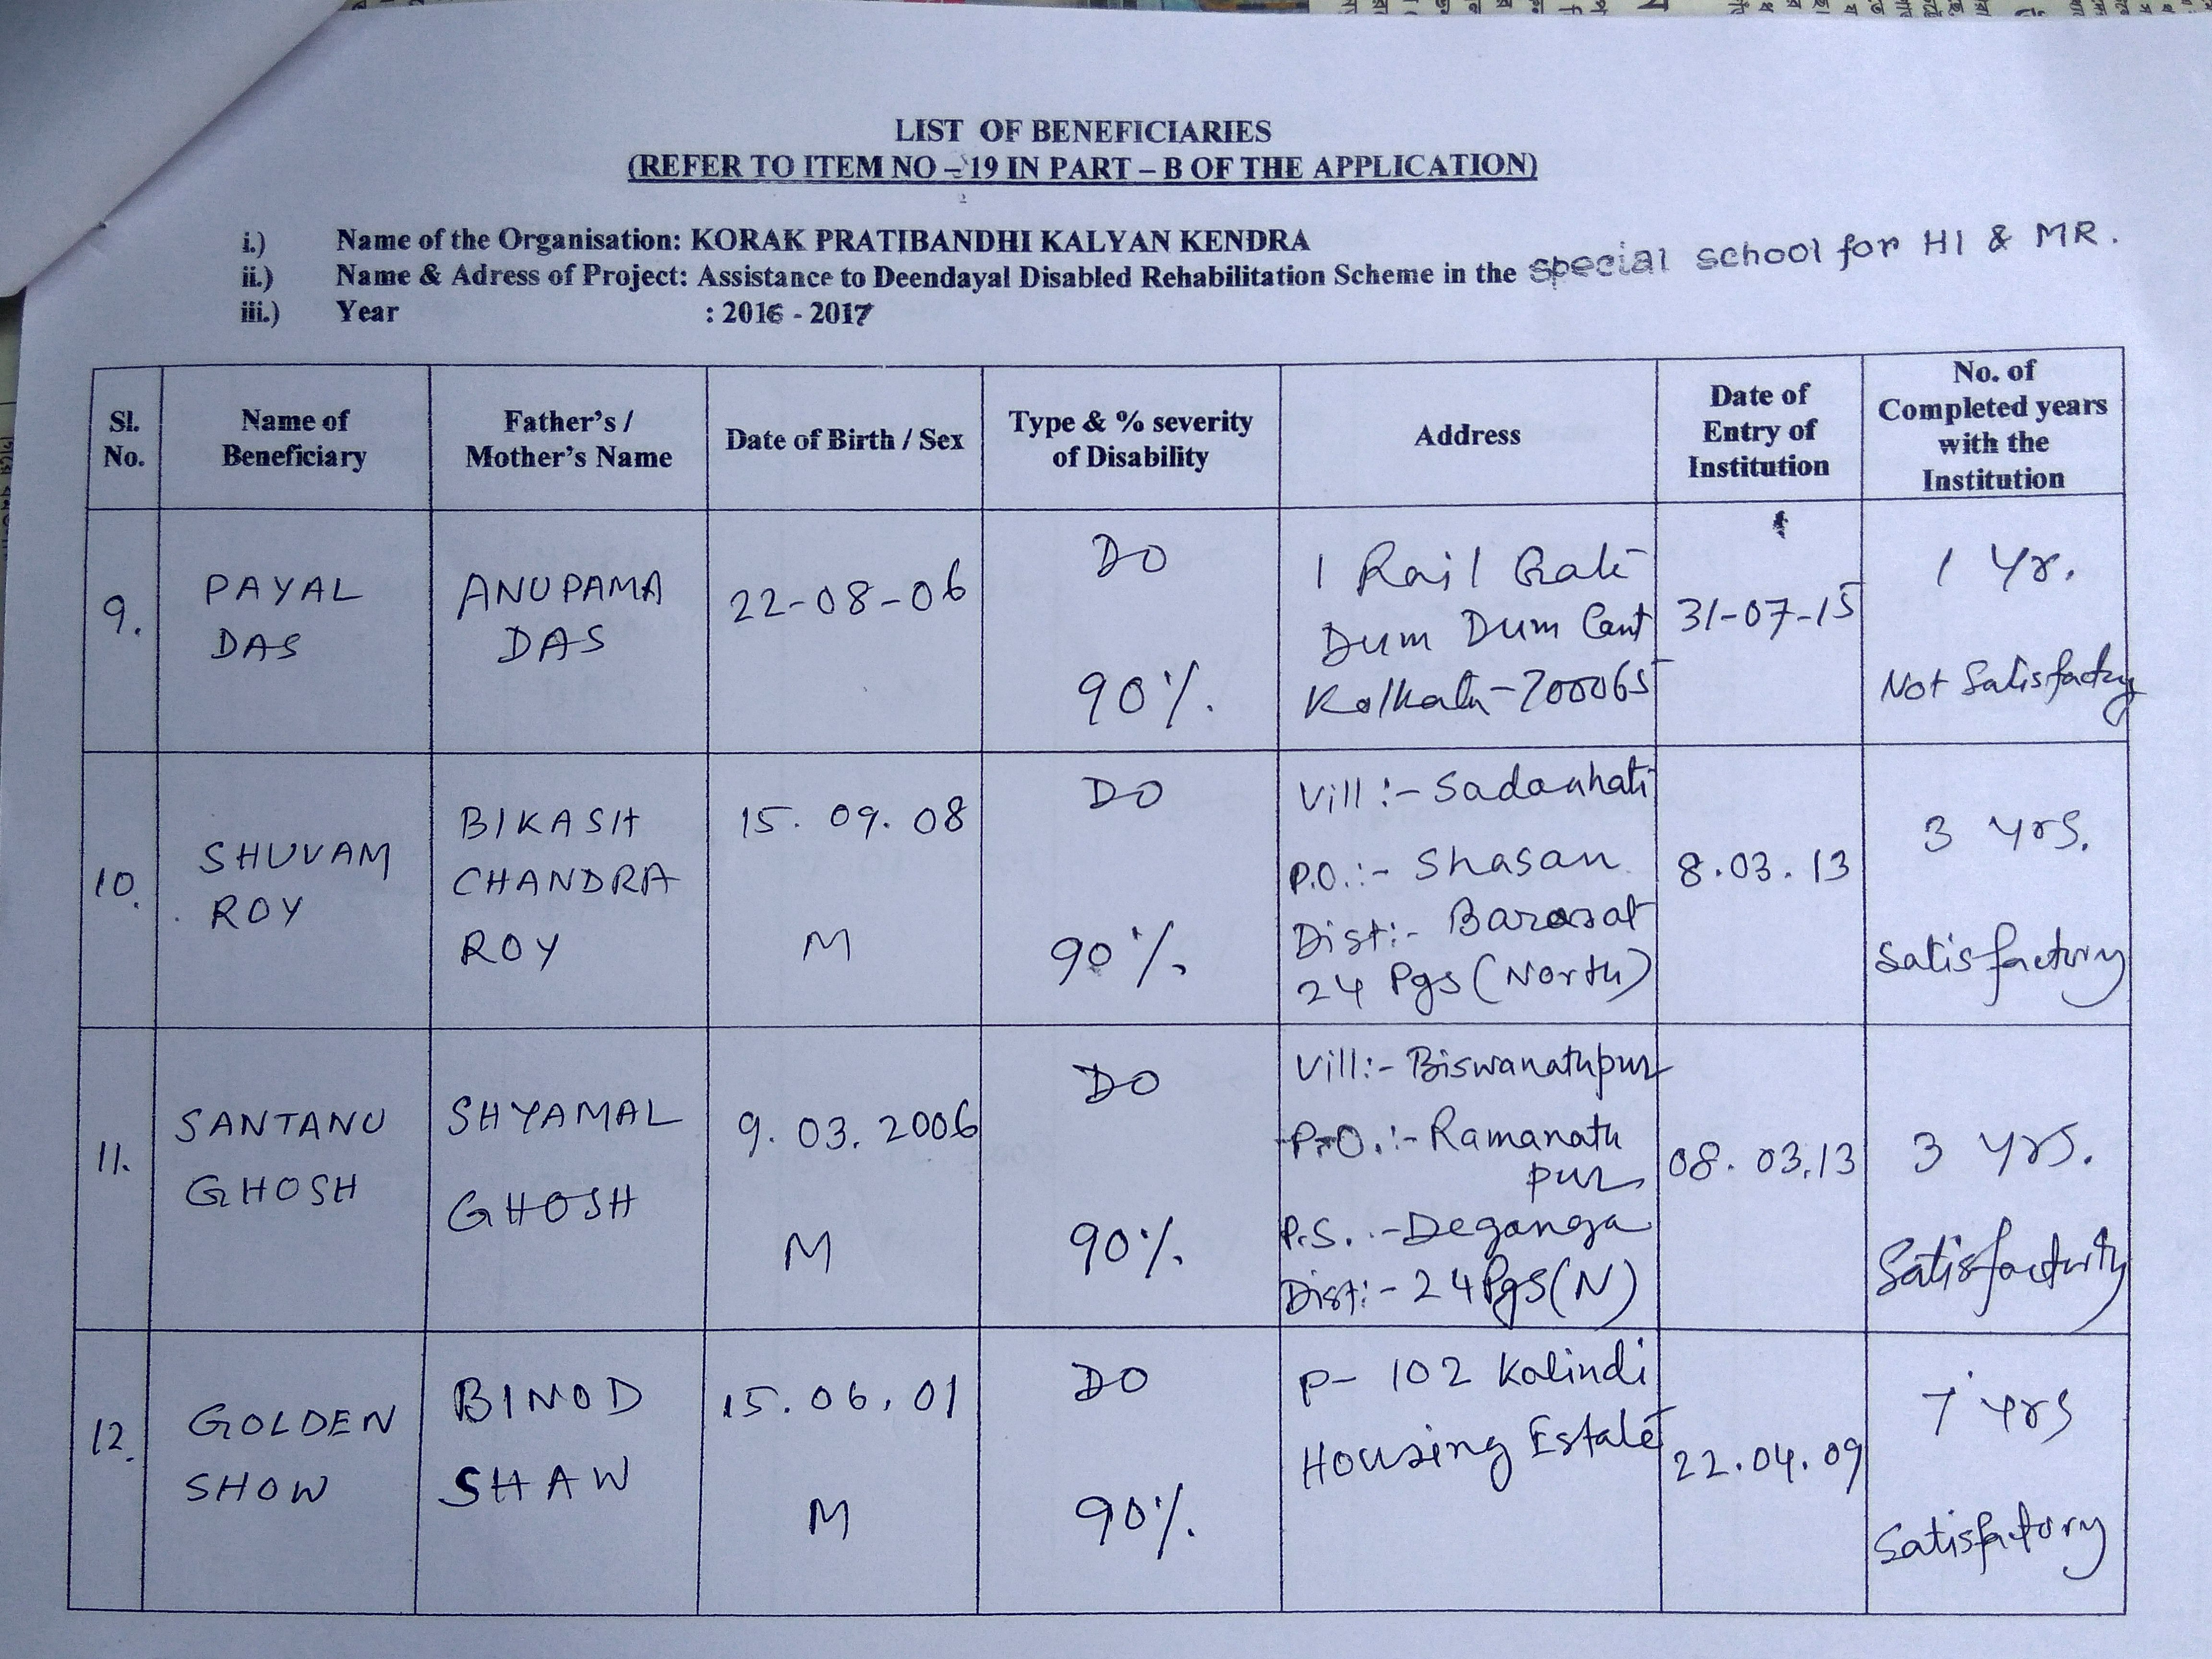 LIST OF BENEFICIARIES
(REFER TO ITEM NO – 19 IN PART – B OF THE APPLICATION)
i.) Name of the Organisation: KORAK PRATIBANDHI KALYAN KENDRA
ii.) Name & Adress of Project: Assistance to Deendayal Disabled Rehabilitation Scheme in the special school for HI & MR.
iii.) Year : 2016 - 2017
Sl. No.
Name of Beneficiary
Father's / Mother's Name
Date of Birth / Sex
Type & % severity of Disability
Address
Date of Entry of Institution
No. of Completed years with the Institution
9.
PAYAL
DAS
ANUPAMA
DAS
22-08-06
DO
90%.
1 Rail Gate
Dum Dum Cant
Kolkata-700065
31-07-15
1 Yr.
Not Satisfactry
10.
SHUVAM
ROY
BIKASH
CHANDRA
ROY
15. 09. 08
M
DO
90%.
Vill :-
P.O. :- Shasan
Dist :- Barasat
24 Pgs (North)
8.03.13
3 Yrs.
Satisfactory
11.
SANTANU
GHOSH
SHYAMAL
GHOSH
9. 03. 2006
M
DO
90%.
Vill:- Biswanathpur
P.O. :- Ramanath
pur
P.S. :- Deganga
Dist:- 24 Pgs (N)
08. 03.13
3 Yrs.
Satisfactory
12.
GOLDEN
SHOW
BINOD
SHAW
15. 06. 01
M
DO
90%.
P- 102 Kalindi
Housing Estate
22.04.09
7 Yrs
Satisfactory